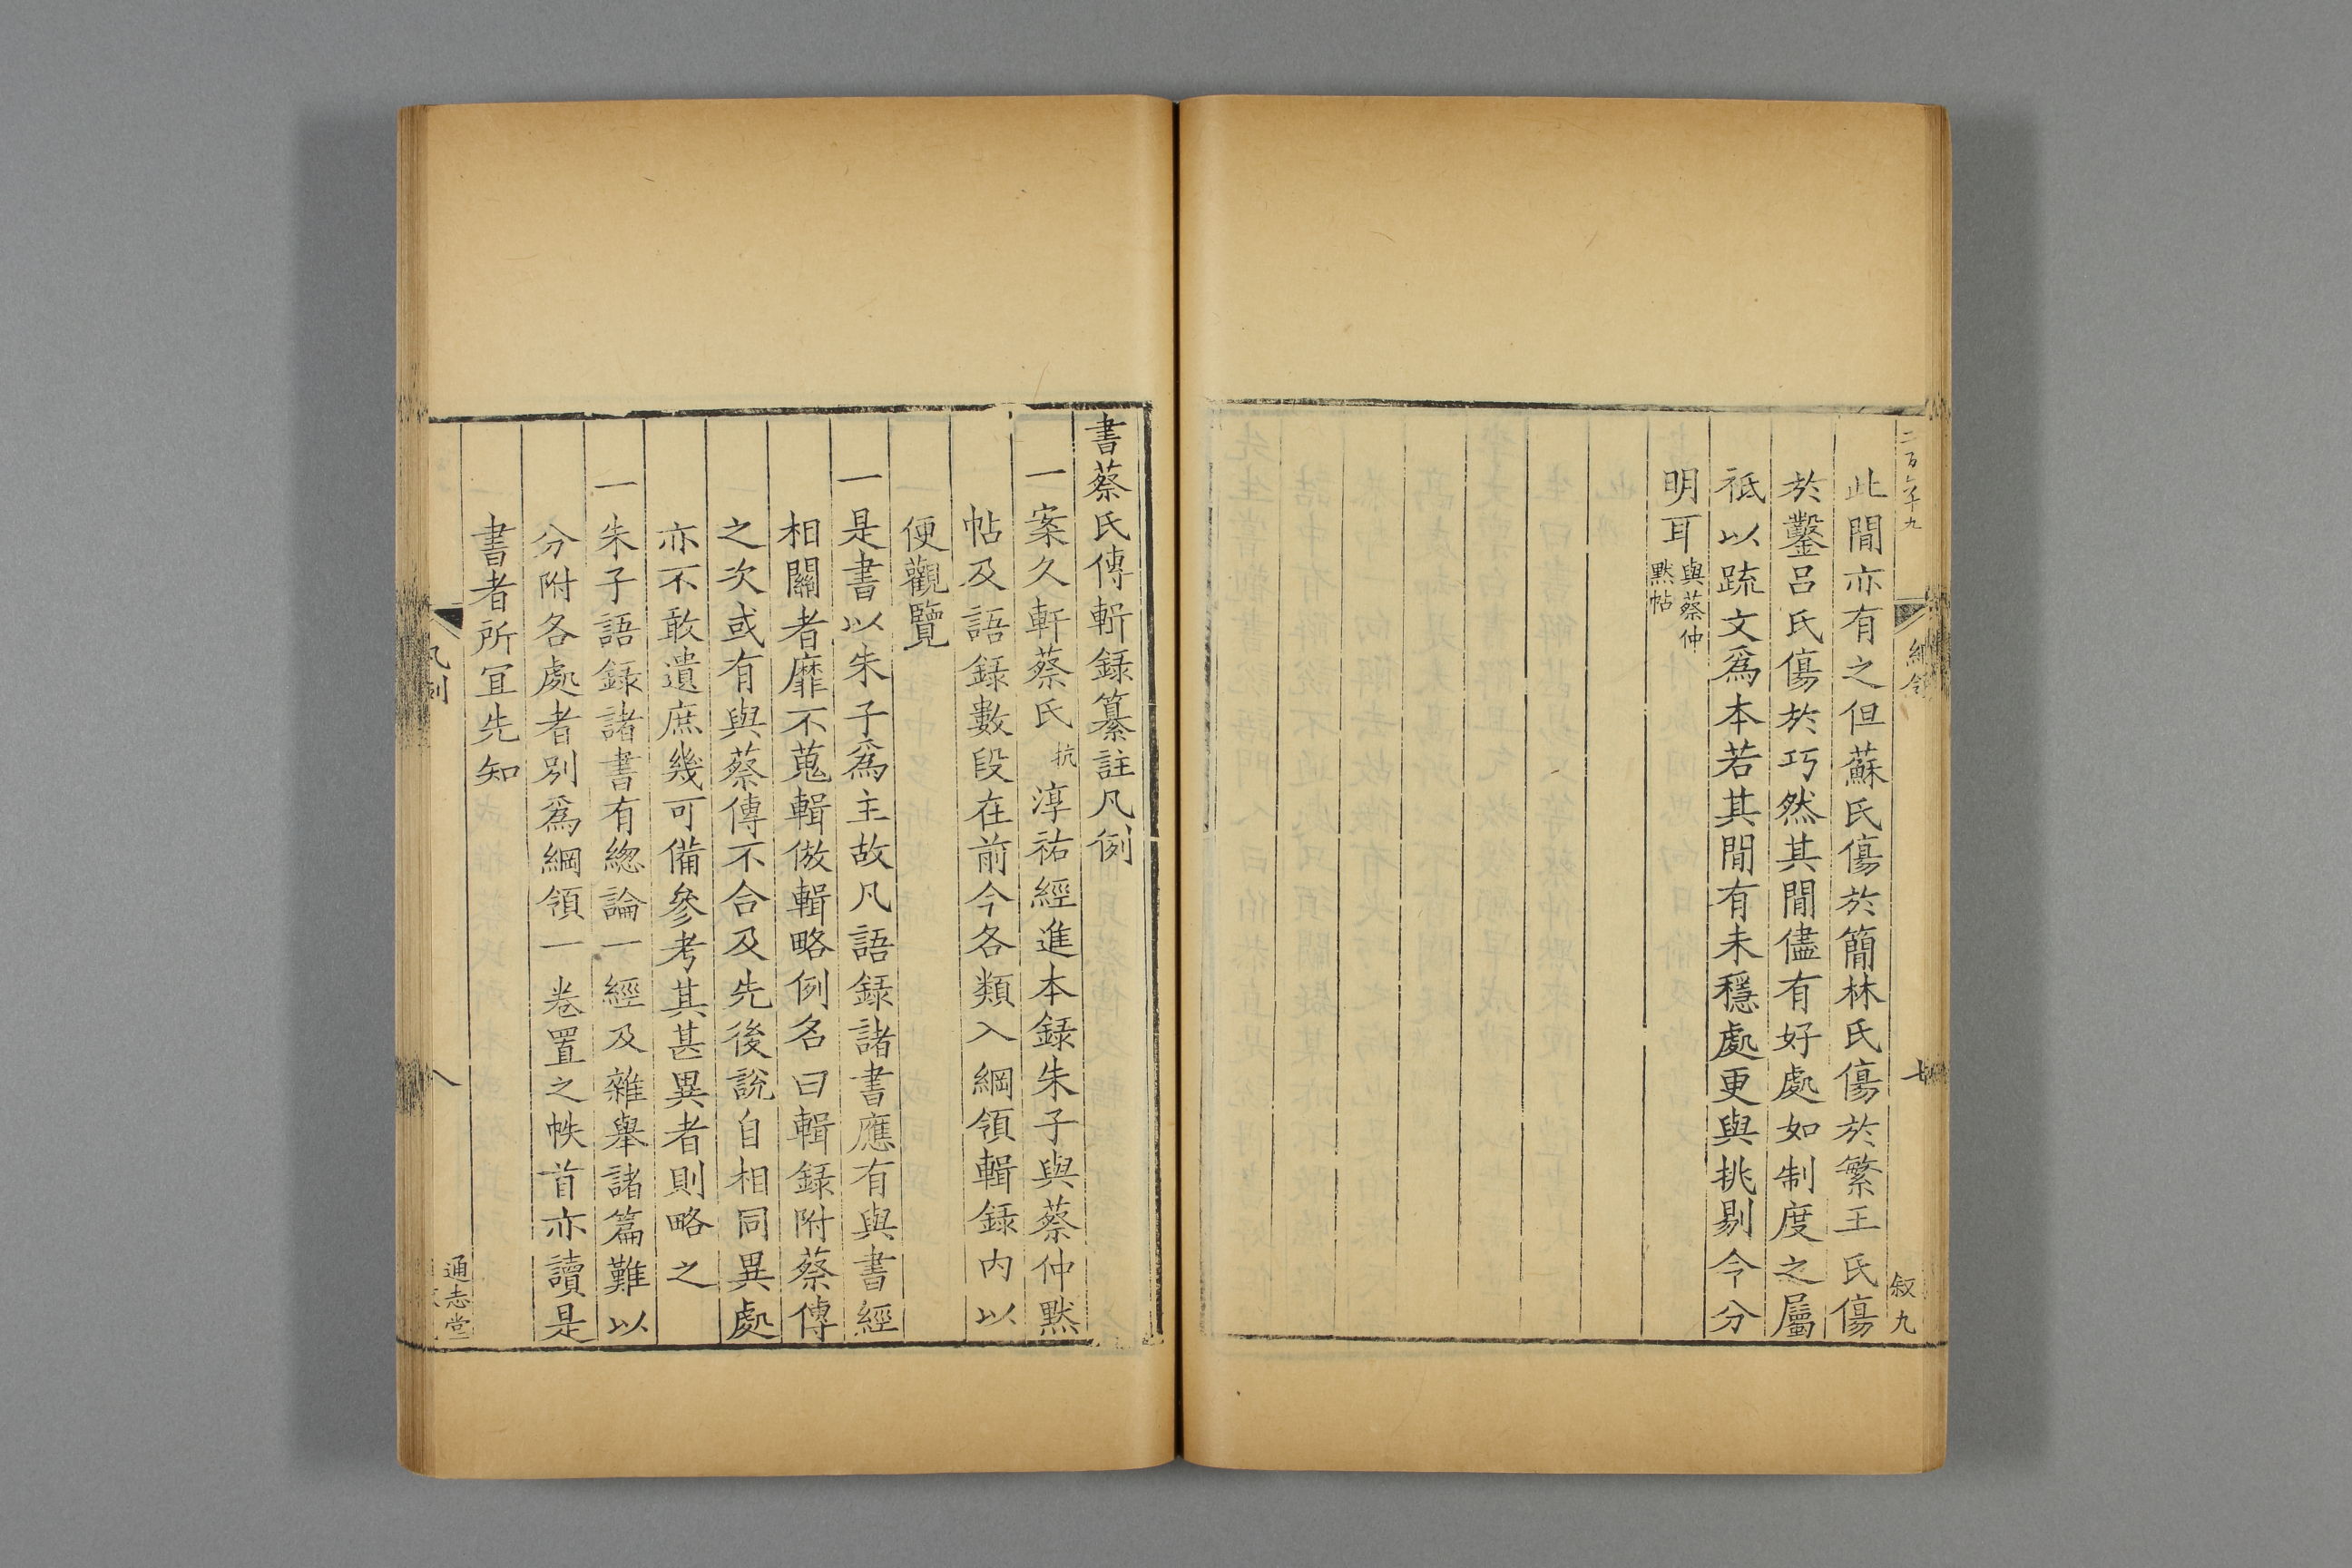 此閒亦有之但蘇氏傷於簡林氏傷於繁王氏傷
於鑿吕氏傷於巧然其閒儘有好處如制度之屬
祗以疏文爲本若其閒有未穩處更與挑剔令分
明耳與蔡仲
默帖
叙九
書蔡氏傳輯録纂註凡例
一案久軒蔡氏抗淳祐經進本録朱子與蔡仲默
帖及語録數段在前今各類入綱領輯録内以
便觀覽
一是書以朱子爲主故凡語録諸書應有與書經
相關者靡不蒐輯倣輯略例名曰輯録附蔡傳
之次或有與蔡傳不合及先後說自相同異處
亦不敢遺庶幾可備參考其甚異者則略之
一朱子語録諸書有緫論一經及雜舉諸篇難以
分附各處者别爲綱領一卷置之帙首亦讀是
書者所宜先知
凡例
八
通志堂